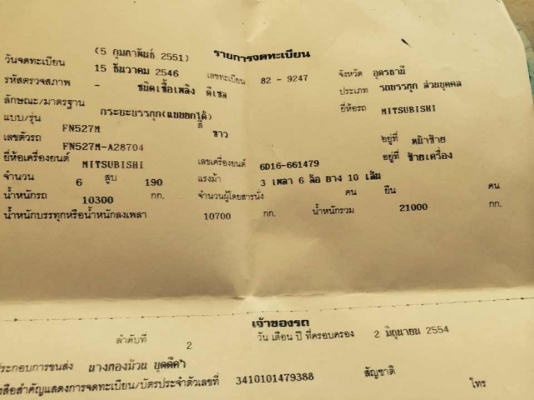 (5 กุมภาพันธ์ 2551) รายการจดทะเบียน
วันจดทะเบียน 15 ธันวาคม 2546 เลขทะเบียน 82 - 9247 จังหวัด อุดรธานี
รหัสตรวจสภาพ - ชนิดเชื้อเพลิง ดีเซล ประเภท รถบรรทุก ส่วนบุคคล
ลักษณะ/มาตรฐาน กระบะบรรทุก(แบบยกได้) ยี่ห้อรถ MITSUBISHI
แบบ/รุ่น FN527M สี ขาว
เลขตัวรถ FN527M-A28704 อยู่ที่ หน้าซ้าย
ยี่ห้อเครื่องยนต์ MITSUBISHI เลขเครื่องยนต์ 6D16-661479 อยู่ที่ ซ้ายเครื่อง
จำนวน 6 สูบ 190 แรงม้า 3 เพลา 6 ล้อ ยาง 10 เส้น
น้ำหนักรถ 10300 กก. จำนวนผู้โดยสารนั่ง คน ยืน คน
น้ำหนักบรรทุกหรือน้ำหนักลงเพลา 10700 กก. น้ำหนักรวม 21000 กก.
เจ้าของรถ
ลำดับที่ 2 วัน เดือน ปี ที่ครอบครอง 2 มิถุนายน 2554
ประกอบการขนส่ง นางทองม้วน
สือสำคัญแสดงการจดทะเบียน/บัตรประจำตัวเลขที่ 3410101479388 สัญชาติ โทร